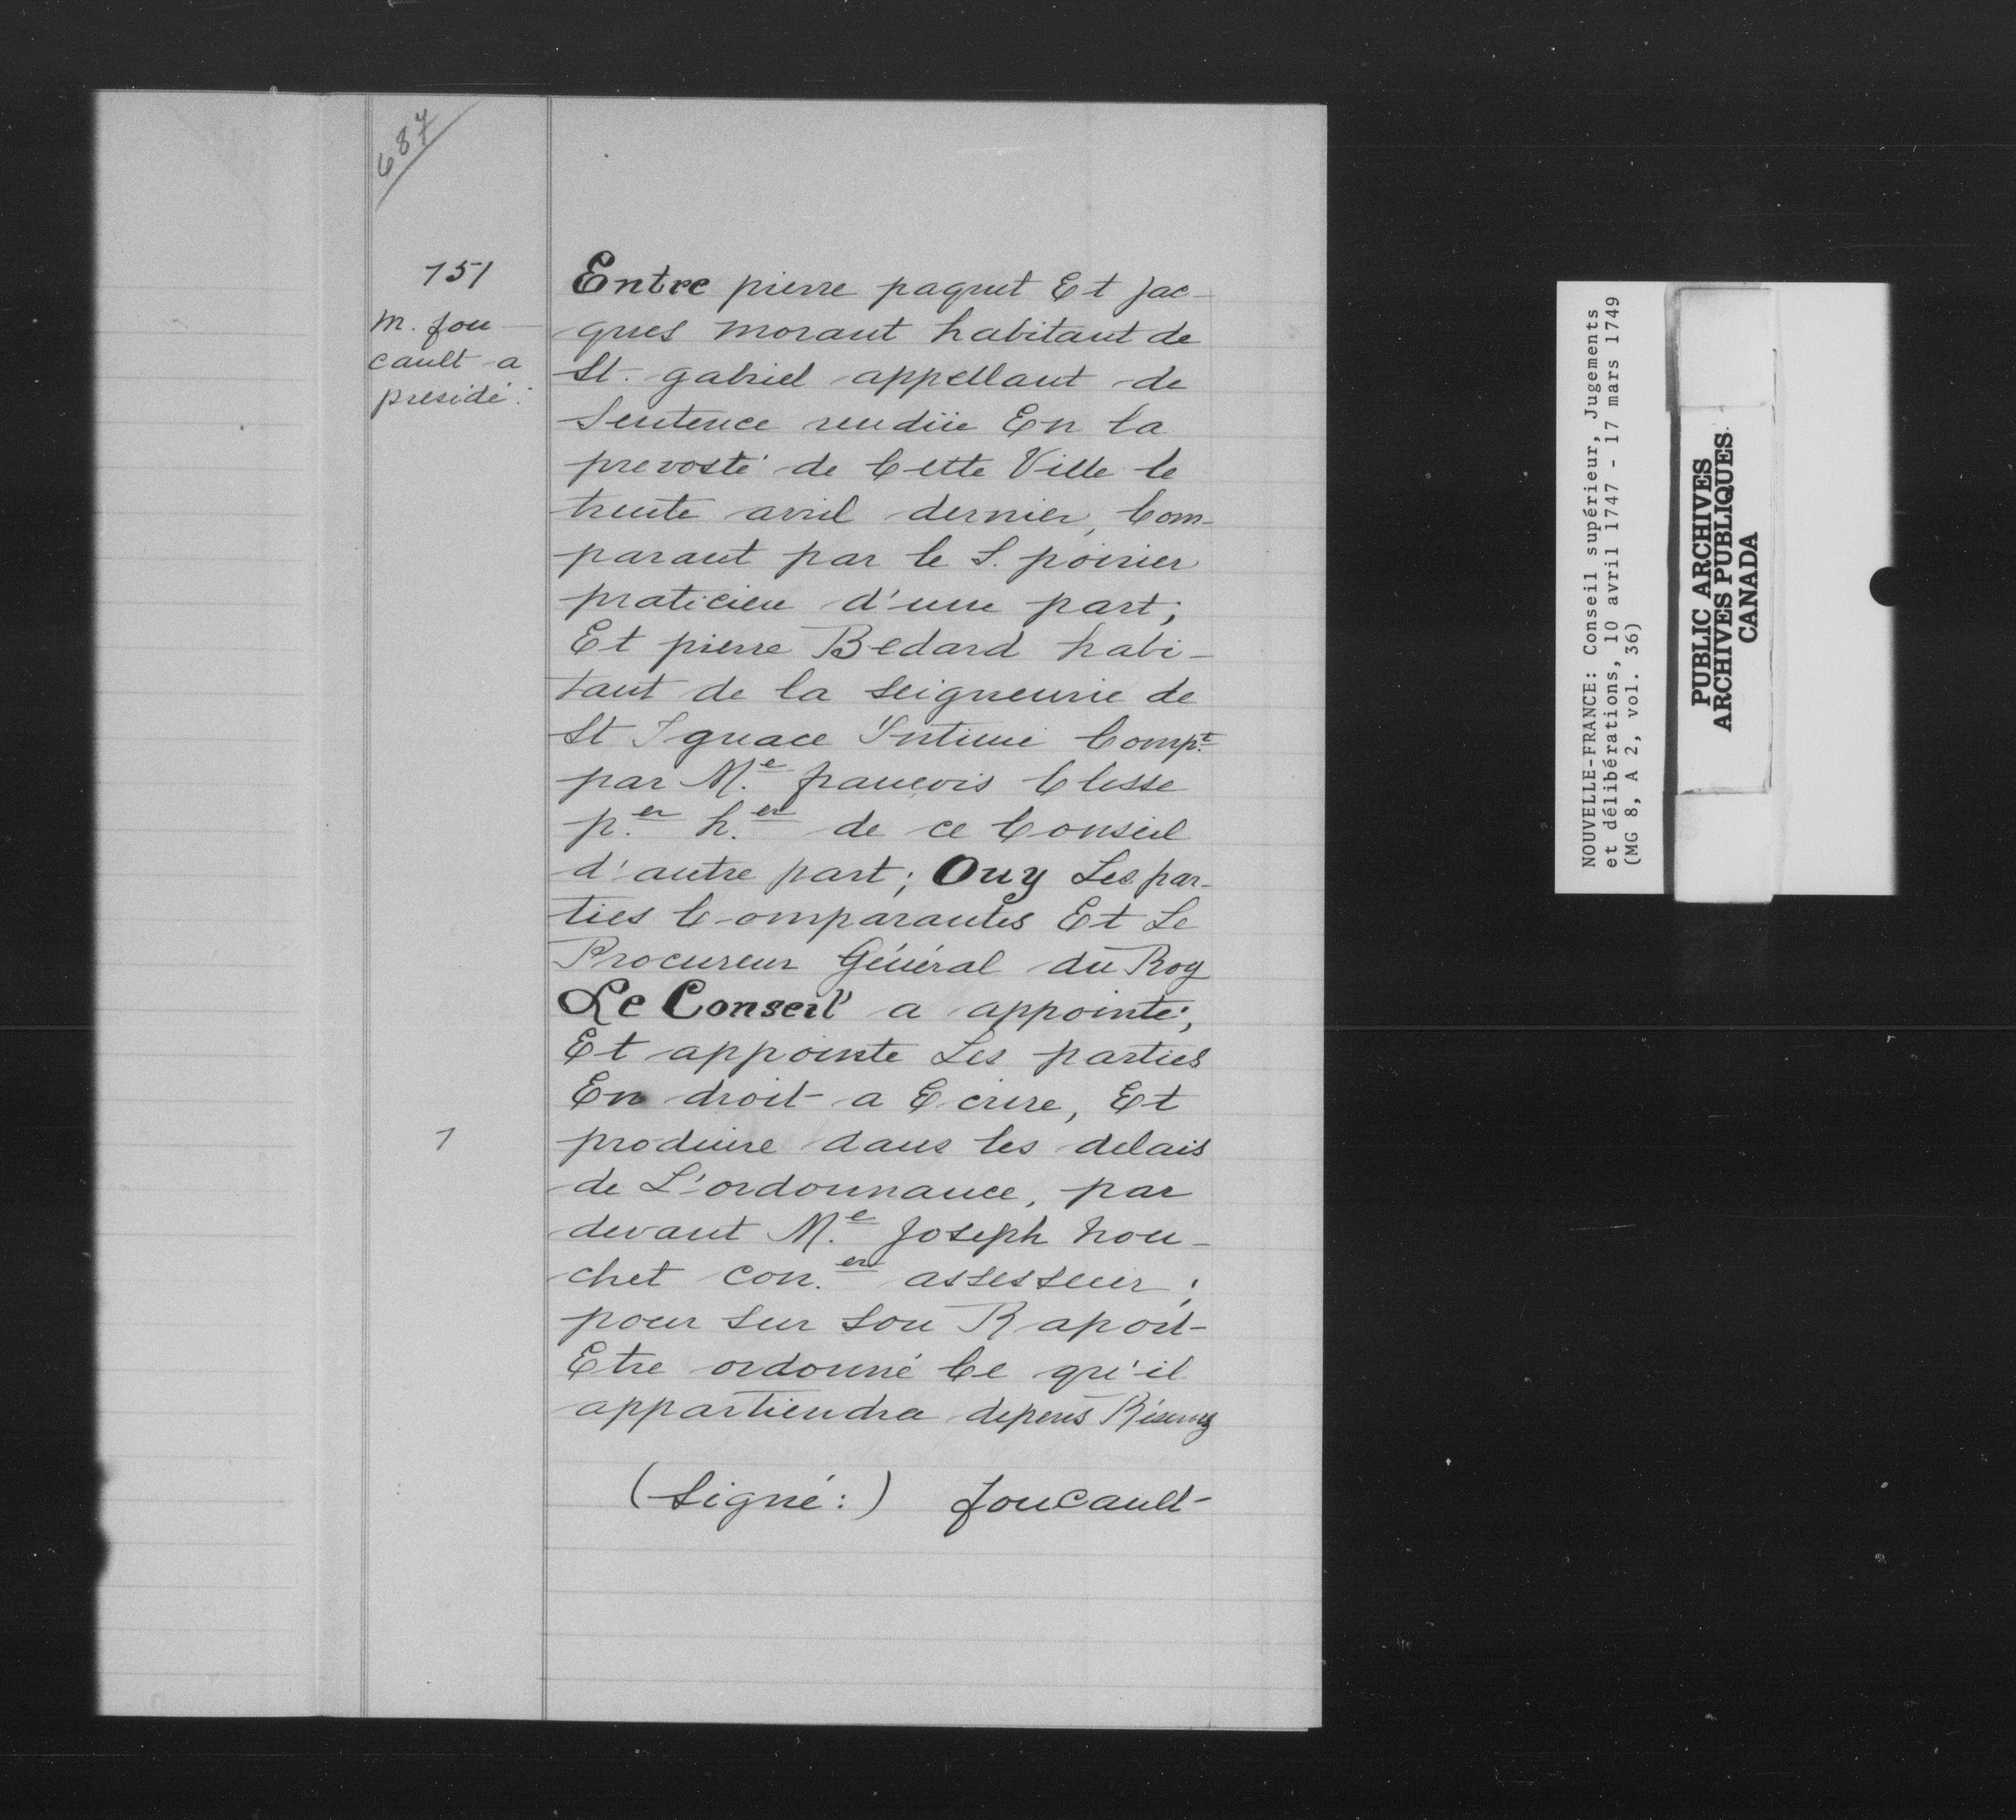 687
151
M. fou-
cault a
presidé:
Entre pierre paquet Et Jac-
ques morant habitant de
St. gabriel appellant de
Sentence rendüe En la
prevosté de Cette Ville le
trente avril dernier, Com-
parant par le S. poirier
praticien d'une part;
Et pierre Bedard habi-
tant de la seigneurie de
St Ignace Intimé Comp.t
par M.e francois Clesse
p.er h.er de ce Conseil
d'autre part; Ouy Les par-
ties Comparantes Et Le
Procureur Général du Roy
Le Conseil a appointé,
Et appointe Les parties
En droit a Ecrire, Et
1
produire dans les delais
de L'ordonnance, par
devant M.e Joseph nou-
chet con.er assesseur;
pour sur son Raport
Etre ordonné Ce qu'il
appartiendra depens Réservez
(Signé:) foucault
NOUVELLE-FRANCE: Conseil supérieur, Jugements
et délibérations, 10 avril 1747 - 17 mars 1749
(MG 8, A 2, vol. 36)
PUBLIC ARCHIVES
ARCHIVES PUBLIQUES
CANADA